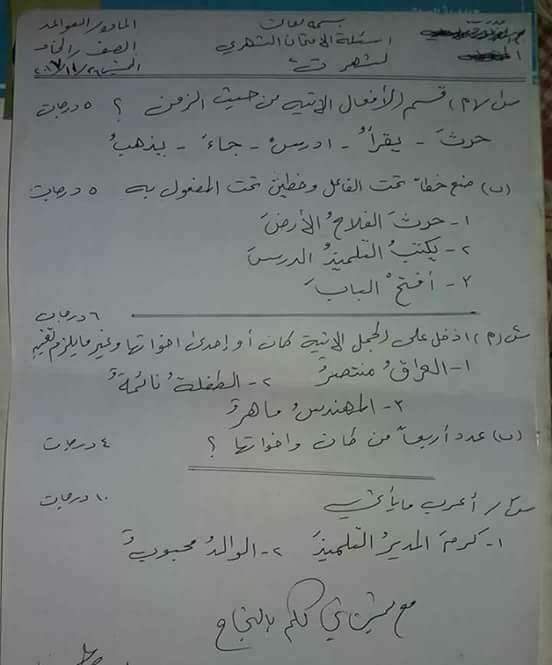 بسمه تعالى
المادة/ القواعد
اسئلة الامتحان الشهري
الصف/ الخامس
لشهر ت٢
س١/ (أ) قسم الأفعال الاتية من حيث الزمن ؟ ٥ درجات
حرثَ - يقرأُ - ادرسْ - جاءَ - يذهبُ
(ب) ضع خطاً تحت الفاعل وخطين تحت المفعول به ٥ درجات
١- حرثَ الفلاحُ الأرضَ
٢- يكتبُ التلميذُ الدرسَ
٣- أفتحُ البابَ
٦ درجات
س٢/ (أ) ادخل على الجمل الاتية كان أو إحدى اخواتها وغير ما يلزم تغييره
١- العراقُ منتصرٌ ٢- الطفلةُ نائمةٌ
٣- المهندسُ ماهرٌ
(ب) عدد أربعاً من كان واخواتها ؟ ٤ درجات
س٣/ أعرب ما يأتي ١٠ درجات
١- كرمَ المديرُ التلميذَ ٢- الوالدُ محبوبٌ
مع تمنياتي لكم بالنجاح